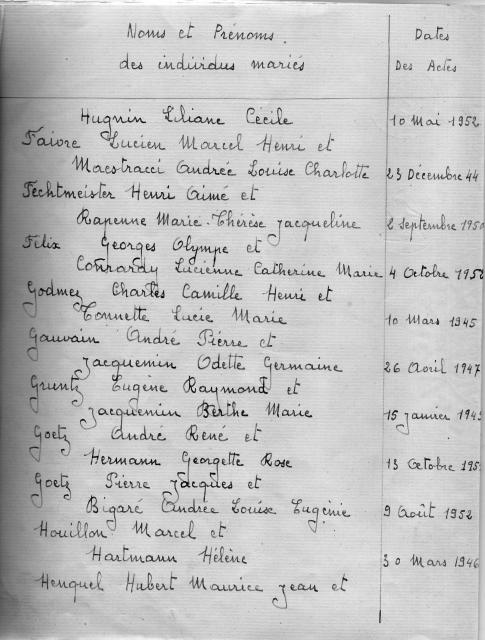 Noms et Prénoms. Dates
des individus mariés Des Actes
Hugnin Liliane Cécile 10 Mai 1952
Faivre Lucien Marcel Henri et
Maestracci Andrée Louise Charlotte 23 Décembre 44
Fechtmeister Henri Aimé et
Rapenne Marie-Thérèse Jacqueline 2 Septembre 1950
Félix Georges Olympe et
Conrardy Lucienne Catherine Marie 4 Octobre
Godmez Charles Camille Henri et
Tonnette Lucie Marie 10 Mars 1945
Gauvain André Pierre et
Jacquemin Odette Germaine 26 Avril 1947
Gruntz Eugène Raymond et
Jacquemin Berthe Marie 15 Janvier
Goetz André René et
Hermann Georgette Rose 13 Octobre 195
Goetz Pierre Jacques et
Bigaré Andrée Louise Eugénie 9 Août 1952
Houillon Marcel et
Hartmann Hélène 30 Mars 1946
Henquel Hubert Maurice Jean et